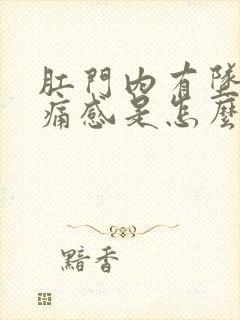 肛門內有墜
痛感是怎麼
黯香